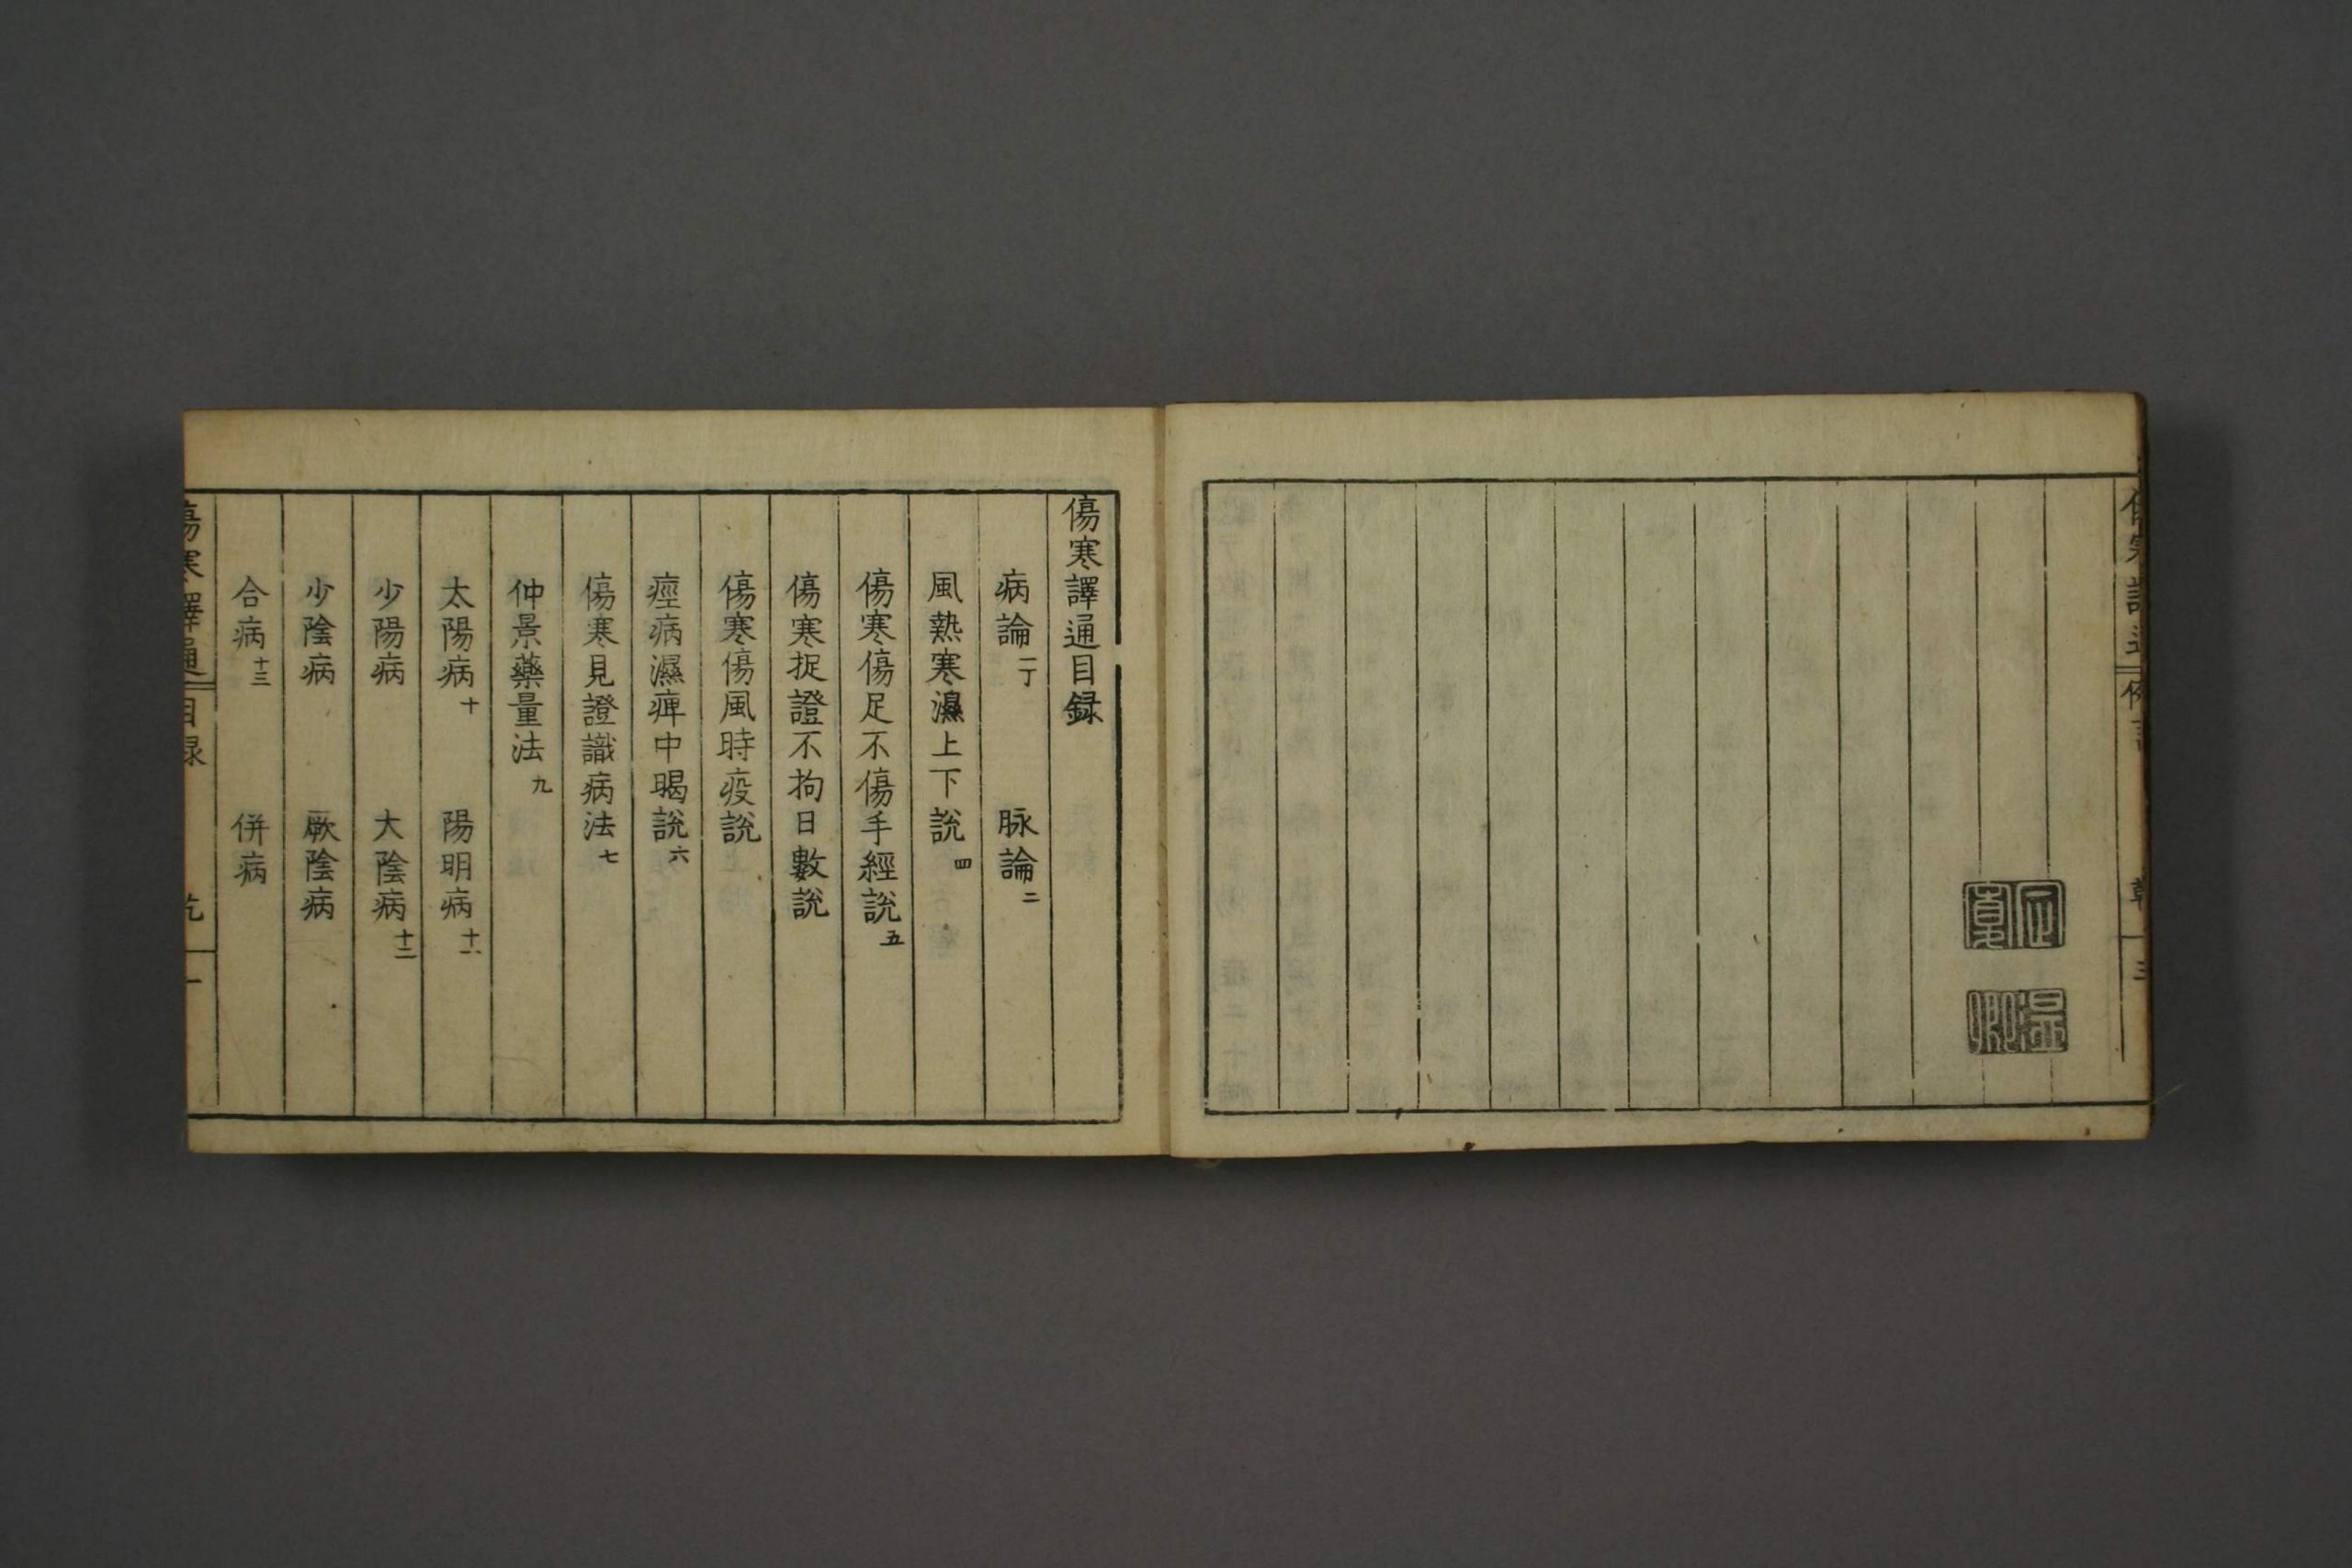 傷寒譯通目録
病論 一丁 脉論 二
風熱寒濕上下説 四
傷寒傷足不傷手經説 五
傷寒捉證不拘日數説
傷寒傷風時疫説
痙病濕痺中暍説 六
傷寒見證識病法 七
仲景藥量法 九
太陽病 十 陽明病 十一
少陽病 大陰病 十二
少陰病 厥陰病
合病 十三 併病
傷寒譯通 目録 乾 一